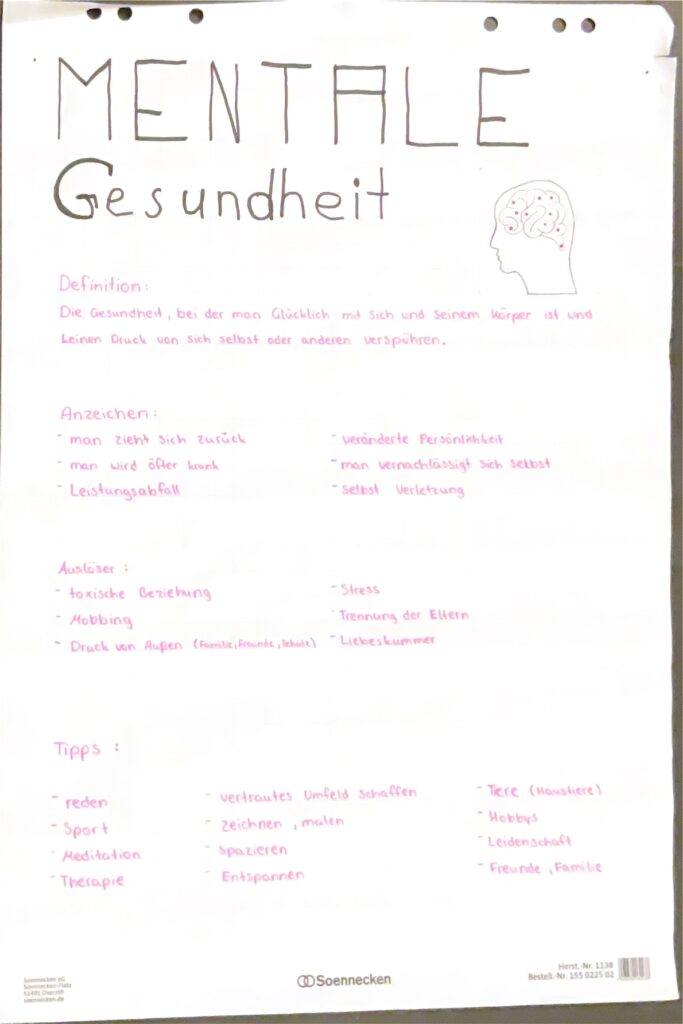 MENTALE
Gesundheit
Definition:
Die Gesundheit, bei der man Glücklich mit sich und seinem Körper ist und
keinen Druck von sich selbst oder anderen verspühren.
Anzeichen:
- man zieht sich zurück
- man wird öfter krank
- Leistungsabfall
- veränderte Persönlichkeit
- man vernachlässigt sich selbst
- selbst Verletzung
Auslöser:
- toxische Beziehung
- Mobbing
- Druck von Außen (Familie, Freunde, Schule)
- Stress
- Trennung der Eltern
- Liebeskummer
Tipps:
- reden
- Sport
- Meditation
- Therapie
- vertrautes Umfeld schaffen
- zeichnen, malen
- spazieren
- Entspannen
- Tiere (Haustiere)
- Hobbys
- Leidenschaft
- Freunde, Familie
Soennecken eG
Soennecken-Platz
51491 Overath
soennecken.de
Soennecken
Herst.-Nr. 1138
Bestell.-Nr. 155 0225 02